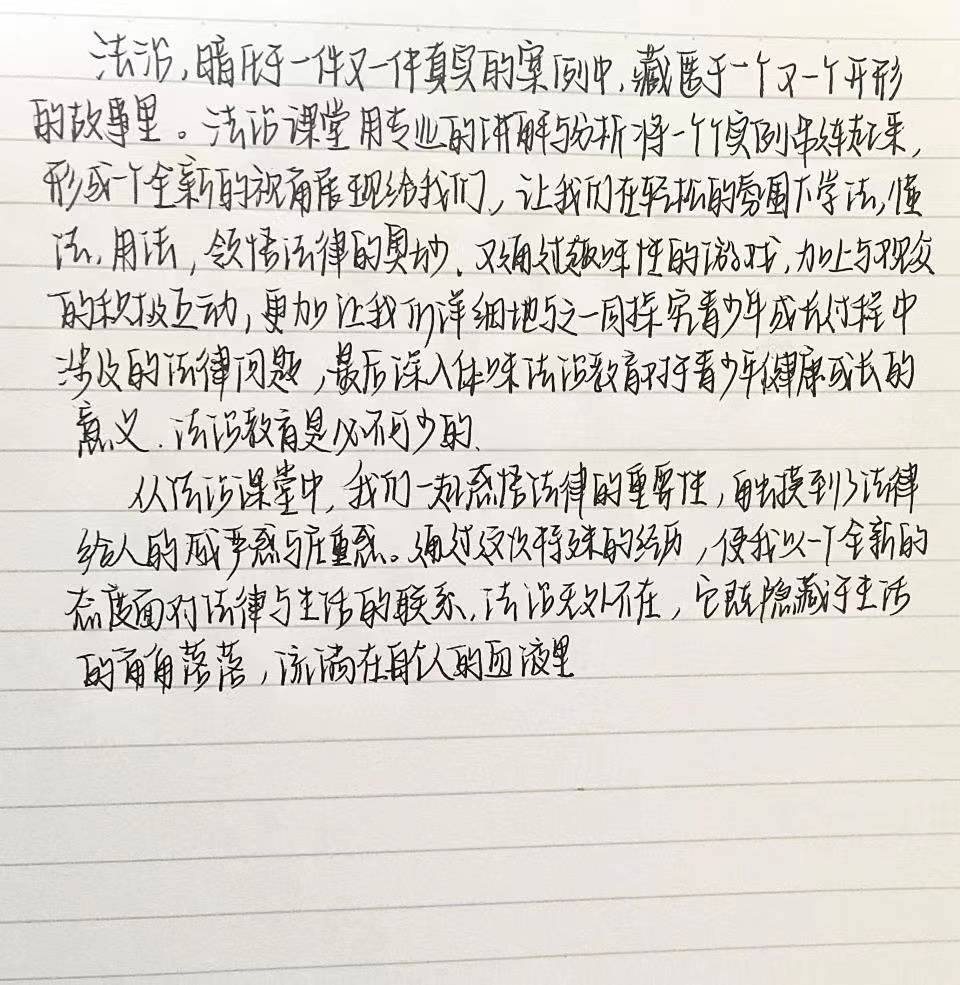 法治，暗伏于一件又一件真实的案例中，藏匿于一个又一个开形
的故事里。法治课堂用专业的讲解与分析将一个个实例串练起来，
形成一个全新的视角展现给我们，让我们在轻松的氛围下学法，懂
法，用法，领悟法律的奥妙，又通过趣味性的游戏，加上与观众
的积极互动，更加让我们详细地与之一同探究青少年成长过程中
涉及的法律问题，最后深入体味法治教育对于青少年健康成长的
意义。法治教育是必不可少的、
从法治课堂中，我们一起感悟法律的重要性，触摸到了法律
给人的威严感与庄重感。通过这次特殊的经历，使我以一个全新的
态度面对法律与生活的联系，法治无处不在，它既隐藏于生活
的角角落落，流淌在每个人的血液里